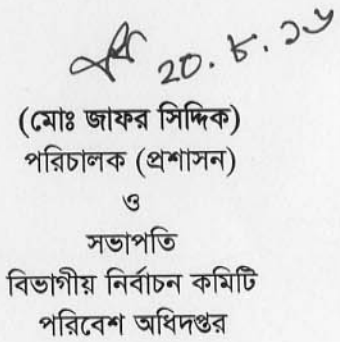 ২০.৮.১৬
(মোঃ জাফর সিদ্দিক)
পরিচালক (প্রশাসন)
ও
সভাপতি
বিভাগীয় নির্বাচন কমিটি
পরিবেশ অধিদপ্তর